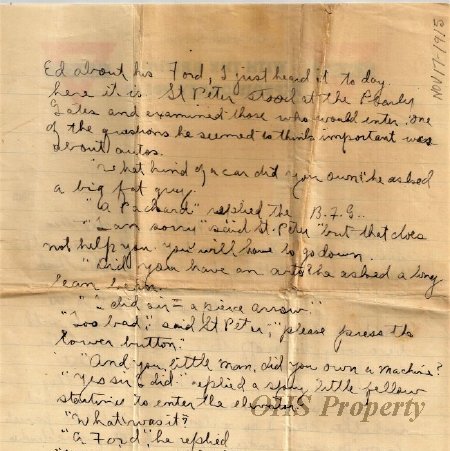 NOV 17-1915
Ed about his Ford, I just heard it to day.
here it is St Peter stood at the Pearly
Gates and examined those who would enter. One
of the questions he seemed to think important was
about autos.
"What kind of a car did you own" he asked
a big fat guy.
"A Packard" replied the B.F.G..
"I am sorry" said St. Peter "but that does
not help you. You will have to go down.
"Did you have an auto? he asked a long
lean
"I did sir - a pierce arrow."
"Too bad," said St Peter, "please press the
lower button."
"And you, little man, did you own a machine?
"Yes sir I did" replied a little fellow
to enter the elevator
"What was it?
"A Ford", he replied
OHS Property